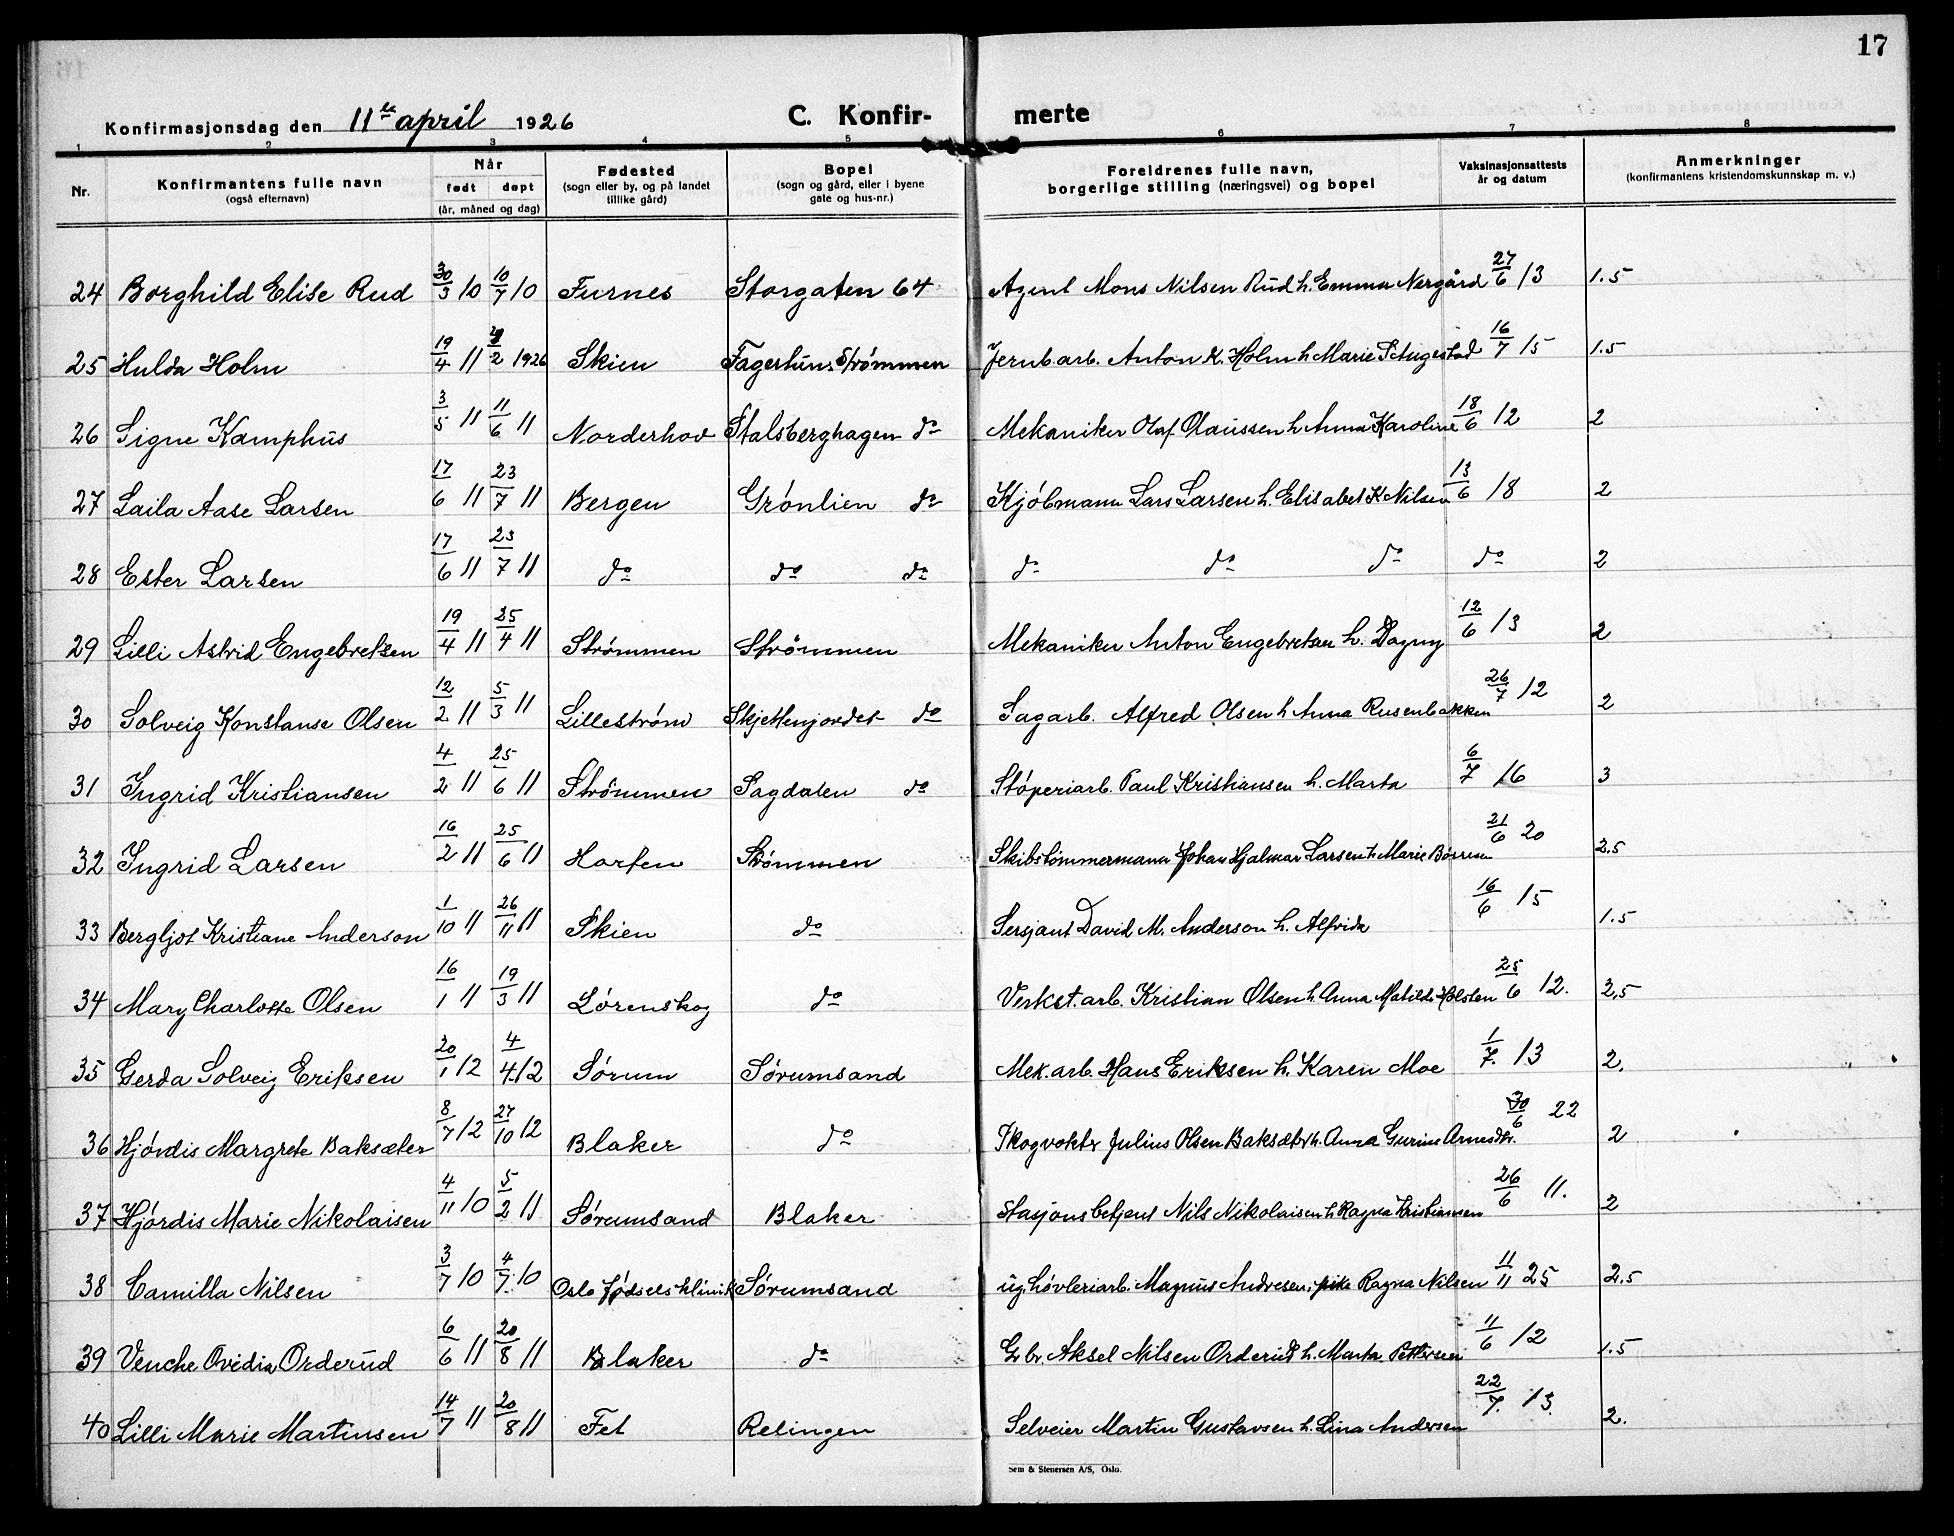 17
Konfirmasjonsdag den 11te april 1926 C. Konfir- merte
1 2 3 4 5 6 7 8
Nr. Konfirmantens fulle navn (også efternavn) Når født døpt (år, måned og dag) Fødested (sogn eller by, og på landet tillike gård) Bopel (sogn og gård, eller i byene gate og hus-nr.) Foreldrenes fulle navn, borgerlige stilling (næringsvei) og bopel Vaksinasjonsattests år og datum Anmerkninger (konfirmantens kristendomskunnskap m. v.)
24 Borghild Elise Rud 30/3 10 10/7 10 Furnes Storgaten 64 Agent Mons Nilsen Rud h. Emma Nergård 27/6 13 1.5
25 Hulda Holm 19/4 11 /2 1926 Skien Fagerlun. Strømmen Jernb.arb. Anton K. Holm h Marie 16/7 15 1.5
26 Signe Kamphus 3/5 11 11/6 11 Norderhov Stalsberghagen do Mekaniker Olaf Olaussen h Anna Karoline 18/6 12 2
27 Laila Aase Larsen 17/6 11 23/7 11 Bergen Grønlien do Kjøbmann Lars Larsen h. Elisabet K Nilsen 13/6 18 2
28 Ester Larsen 17/6 11 23/7 11 do do do do do do do 2
29 Lilli Astrid Engebretsen 19/4 11 25/4 11 Strømmen Strømmen Mekaniker Anton Engebretsen h. Dagny 12/6 13 2
30 Solveig Konstanse Olsen 12/2 11 5/3 11 Lillestrøm Skjettenjordet do Sagarb. Alfred Olsen h Anna Rusenbakken 26/7 12 2
31 Ingrid Kristiansen 4/2 11 25/6 11 Strømmen Sagdalen do Støperiarb. Paul Kristiansen h. Marta 6/7 16 3
32 Ingrid Larsen 16/2 11 25/6 11 Horten Strømmen Skibstømmermann Johan Hjalmar Larsen h. Marie 21/6 20 2.5
33 Bergljot Kristiane Anderson 1/10 11 26/11 11 Skien do Sersjant David M. Anderson h. Alfrida 16/6 15 1.5
34 Mary Charlotte Olsen 16/1 11 19/3 11 Lørenskog do Verkst. arb. Kristian Olsen h. Anna Matilde Holsten 25/6 12. 2,5
35 Gerda Solveig Eriksen 20/1 12 4/4. 12 Sørum Sørumsand Mek. arb. Hans Eriksen h. Karen Moe 1/7. 13 2.
36 Hjørdis Margrete Baksæter 8/7 12 27/10 12 Blaker do Skogvokter Julius Olsen Baksæter h. Anna Gurine Arnesdtr. 30/6 22 2
37 Hjørdis Marie Nikolaisen 4/11 10 5/2 11 Sørumsand Blaker Stasjonsbetjent Nils Nikolaisen h Ragna Kristiansen 26/6 11. 2
38 Camilla Nilsen 3/7 10 4/7. 10 Oslo Fødselsklinik Sørumsand ug. høvleriarb. Magnus Andresen, pike Ragna Nilsen 11/11 25 2.5
39 Venche Ovidia Orderud 6/6 11 20/8 11 Blaker do Gbr. Aksel Nilsen Orderud h. Marta Pettersen 11/6 12 1.5
40 Lilli Marie Martinsen 14/7 11 20/8 11 Fet Relingen Selveier Martin Gustavsen h. Lina Andersen 22/7. 13. 2.
Sem & Stenersen A/S, Oslo.